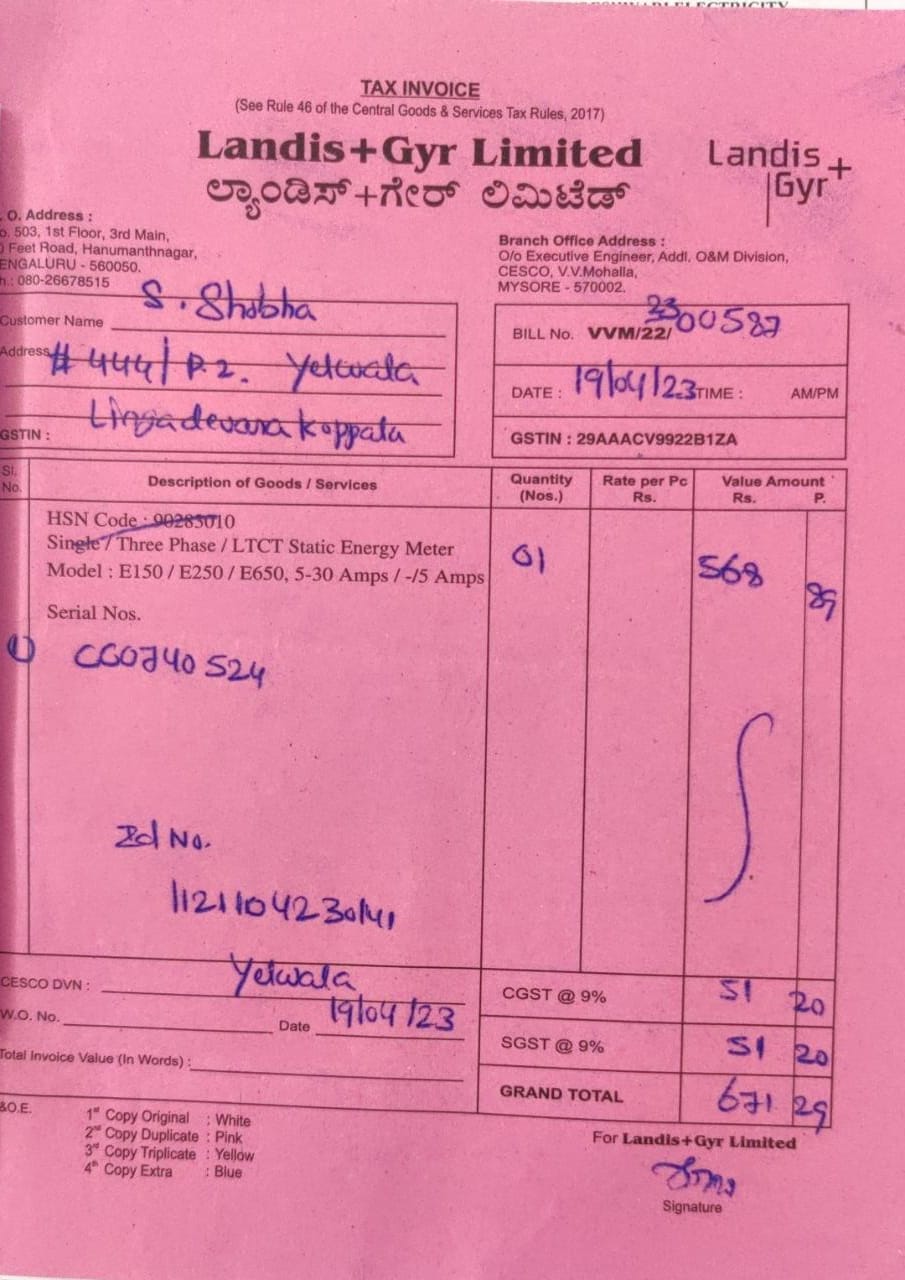 TAX INVOICE
(See Rule 46 of the Central Goods & Services Tax Rules, 2017)
Landis+Gyr Limited
ಲ್ಯಾಂಡಿಸ್+ಗೇರ್ ಲಿಮಿಟೆಡ್
Landis+
Gyr
. O. Address :
o. 503, 1st Floor, 3rd Main,
) Feet Road, Hanumanthnagar,
ENGALURU - 560050.
h.: 080-26678515
Branch Office Address :
O/o Executive Engineer, Addl. O&M Division,
CESCO, V.V.Mohalla,
MYSORE - 570002.
Customer Name S. Shobha
Address # 444/P.2. Yelwala
Lingadevara koppala
GSTIN :
BILL No. VVM/22/ 23 00587
DATE : 19/04/23 TIME : AM/PM
GSTIN : 29AAACV9922B1ZA
Sl. No. Description of Goods / Services Quantity (Nos.) Rate per Pc Rs. Value Amount Rs. P.
HSN Code : 90283010
Single / Three Phase / LTCT Static Energy Meter
Model : E150 / E250 / E650, 5-30 Amps / -/5 Amps
01 568 89
Serial Nos.
1) CG0740524
Id No.
1121104230141
CESCO DVN : Yelwala
W.O. No. Date 19/04/23
Total Invoice Value (In Words) :
CGST @ 9% 51 20
SGST @ 9% 51 20
GRAND TOTAL 671 29
&O.E.
1st Copy Original : White
2nd Copy Duplicate : Pink
3rd Copy Triplicate : Yellow
4th Copy Extra : Blue
For Landis+Gyr Limited
Signature